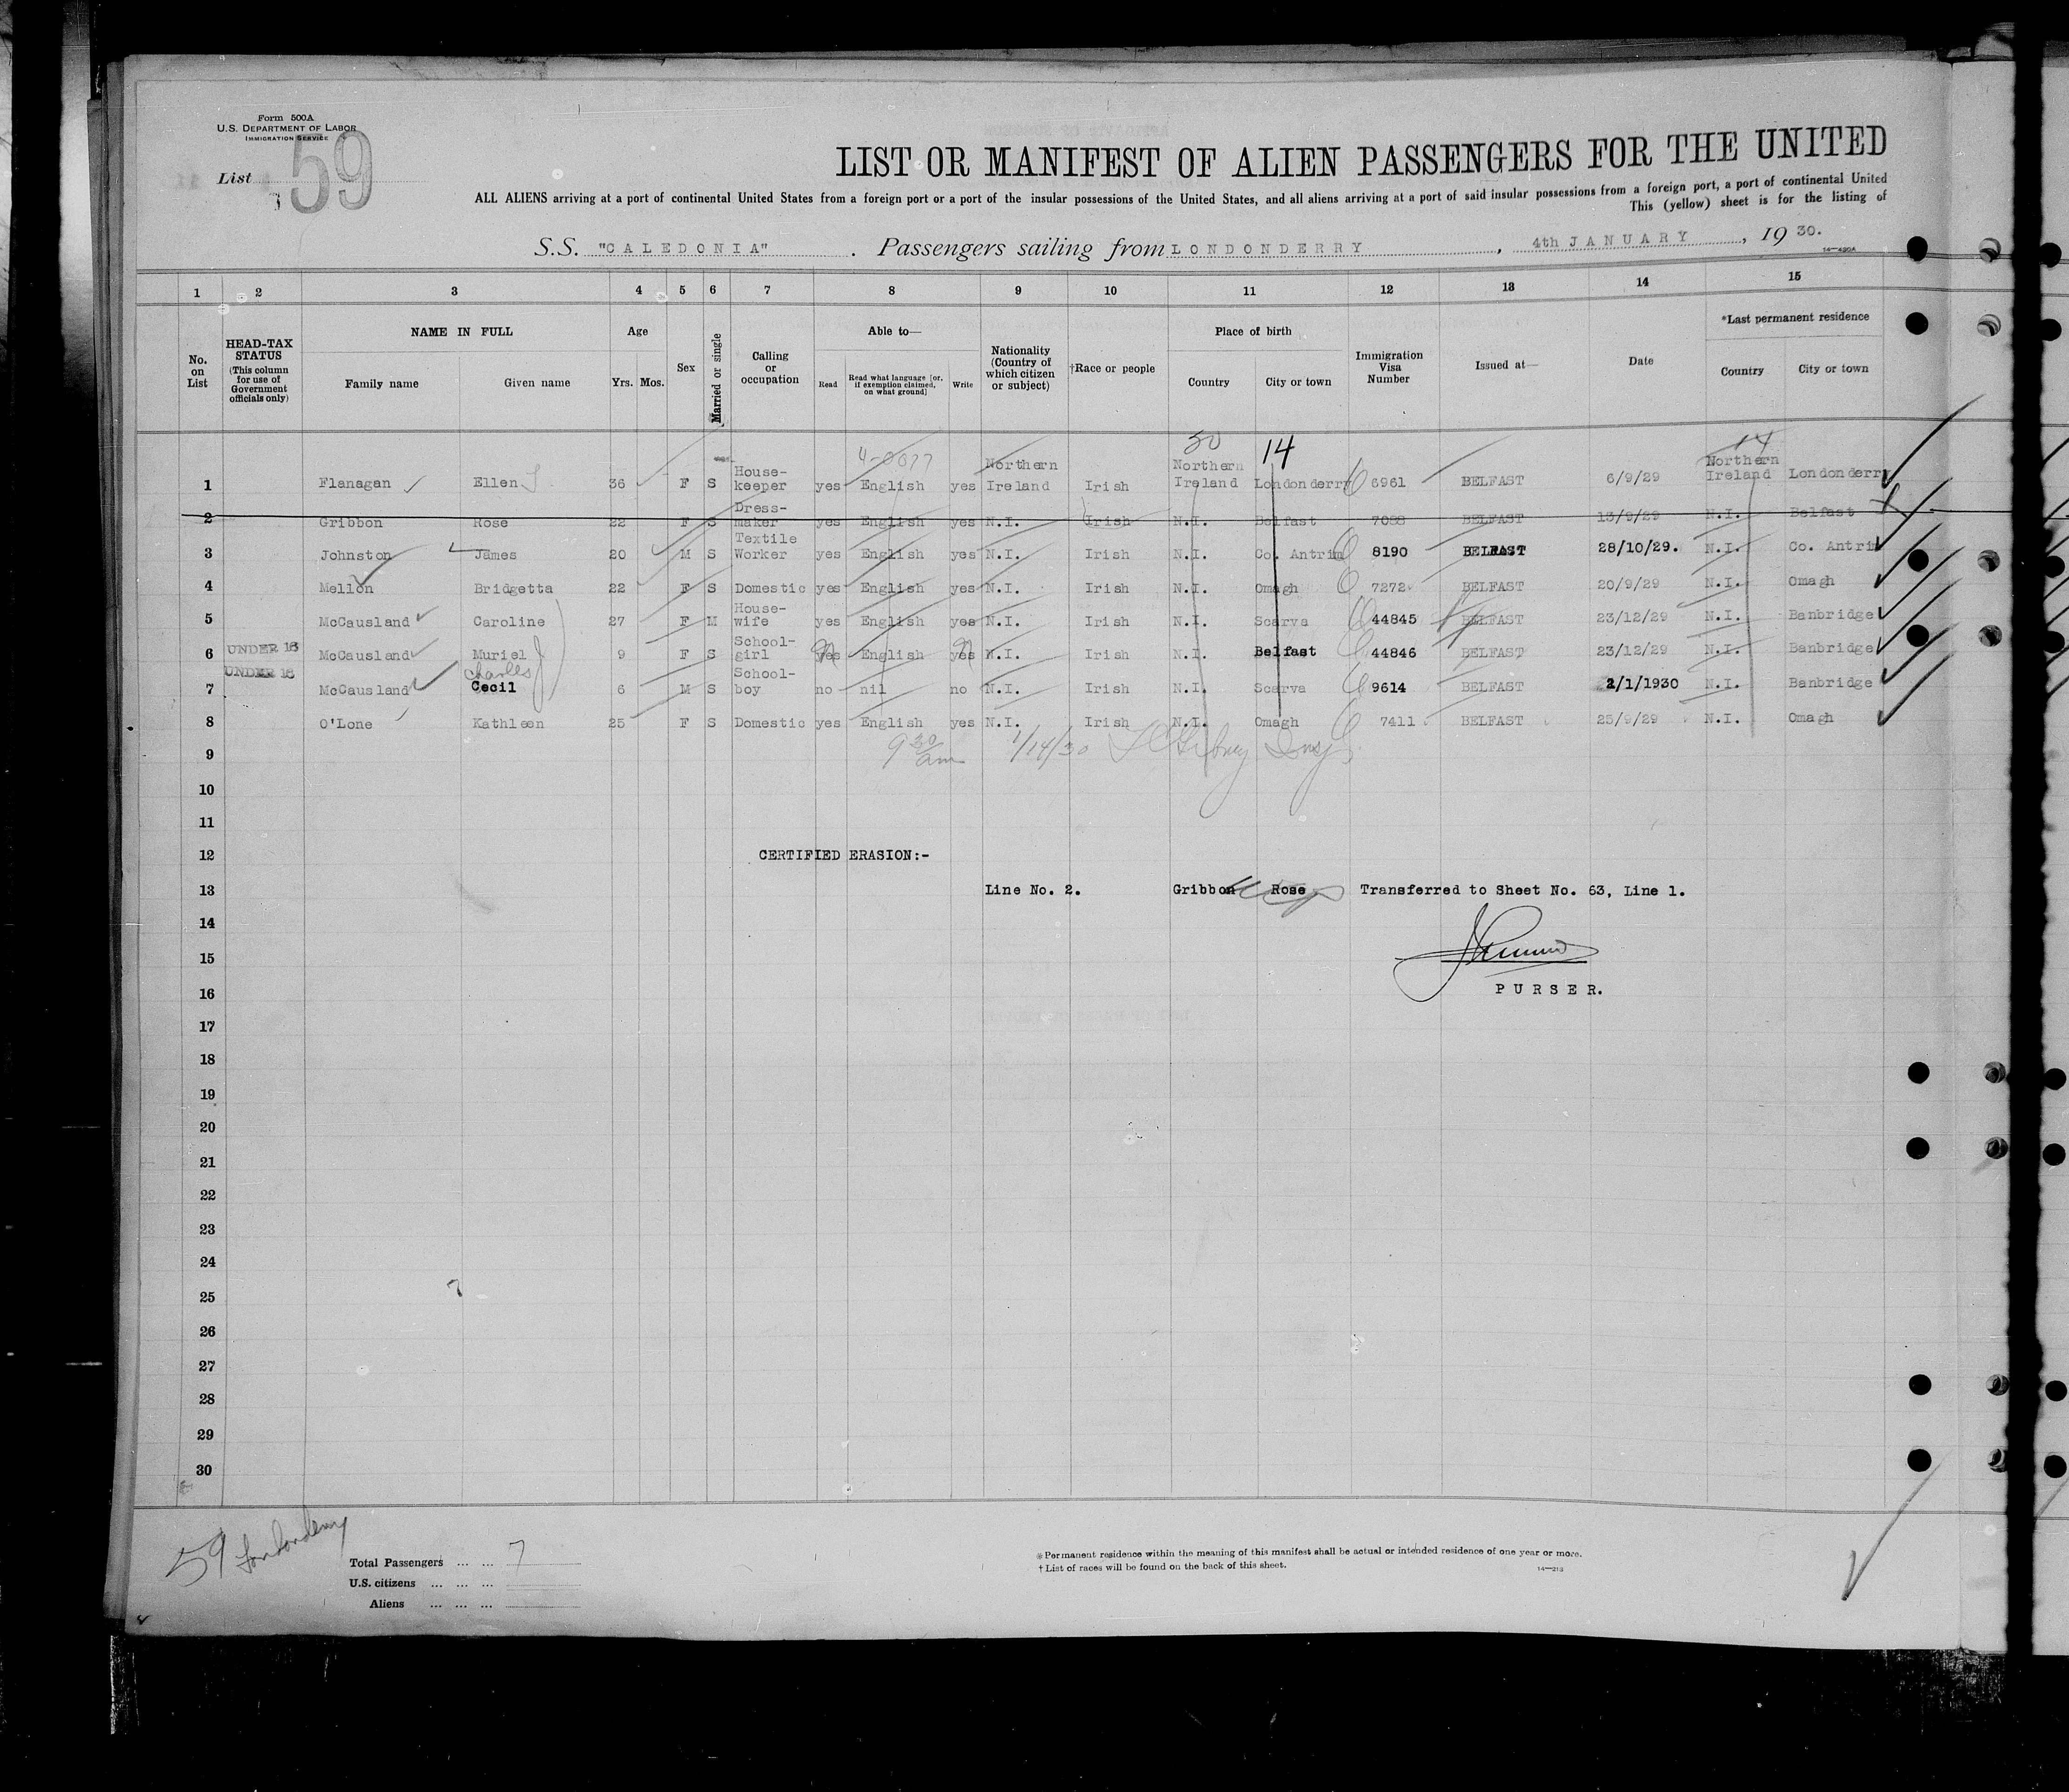 Form 500A
U.S. DEPARTMENT OF LABOR
IMMIGRATION SERVICE
List 59
LIST OR MANIFEST OF ALIEN PASSENGERS FOR THE UNITED
ALL ALIENS arriving at a port of continental United States from a foreign port or a port of the insular possessions of the United States, and all aliens arriving at a port of said insular possessions from a foreign port, a port of continental United
This (yellow) sheet is for the listing of
S.S. "CALEDONIA". Passengers sailing from LONDONDERRY, 4th JANUARY, 19 30.
14—420A
1 2 3 4 5 6 7 8 9 10 11 12 13 14 15
No. on List
HEAD-TAX STATUS (This column for use of Government officials only)
NAME IN FULL
Family name Given name
Age
Yrs. Mos.
Sex
Married or single
Calling or occupation
Able to—
Read Read what language [or, if exemption claimed, on what ground] Write
Nationality (Country of which citizen or subject)
†Race or people
Place of birth
Country City or town
Immigration Visa Number
Issued at—
Date
*Last permanent residence
Country City or town
50 14 14
1 Flanagan Ellen 36 F S House-keeper yes English yes Northern Ireland Irish Northern Ireland Londonderry 6961 BELFAST 6/9/29 Northern Ireland Londonderry
2 Gribbon Rose 22 F S Dress-maker yes English yes N.I. Irish N.I. Belfast 7088 BELFAST 13/9/29 N.I. Belfast
3 Johnston James 20 M S Textile Worker yes English yes N.I. Irish N.I. Co. Antrim 8190 BELFAST 28/10/29. N.I. Co. Antrim
4 Mellon Bridgetta 22 F S Domestic yes English yes N.I. Irish N.I. Omagh 7272 BELFAST 20/9/29 N.I. Omagh
5 McCausland Caroline 27 F M House-wife yes English yes N.I. Irish N.I. Scarva 44845 BELFAST 23/12/29 N.I. Banbridge
6 UNDER 16 McCausland Muriel 9 F S School-girl yes English yes N.I. Irish N.I. Belfast 44846 BELFAST 23/12/29 N.I. Banbridge
7 UNDER 16 McCausland Charles Cecil 6 M S School-boy no nil no N.I. Irish N.I. Scarva 9614 BELFAST 2/1/1930 N.I. Banbridge
8 O'Lone Kathleen 25 F S Domestic yes English yes N.I. Irish N.I. Omagh 7411 BELFAST 25/9/29 N.I. Omagh
9 9 30 am 1/14/30
10
11
12 CERTIFIED ERASION:-
13 Line No. 2. Gribbon Rose Transferred to Sheet No. 63, Line 1.
14
15
16 PURSER.
17
18
19
20
21
22
23
24
25
26
27
28
29
30
59 Londonderry
Total Passengers ... ... 7
U.S. citizens ... ... ...
Aliens ... ... ...
* Permanent residence within the meaning of this manifest shall be actual or intended residence of one year or more.
† List of races will be found on the back of this sheet.
14—213